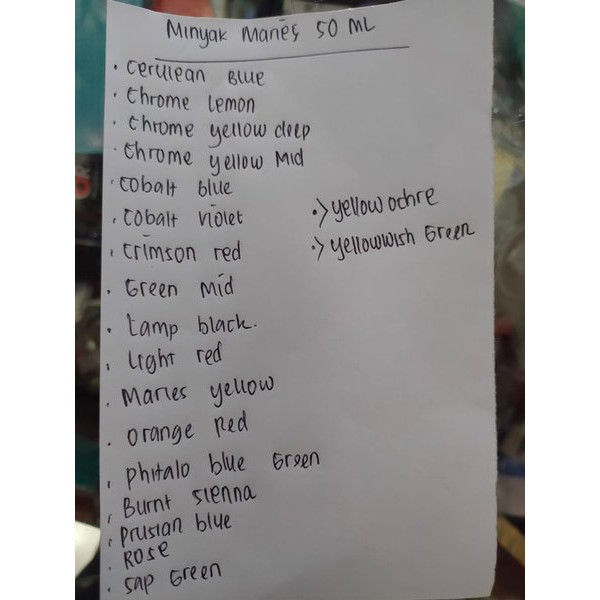 Minyak Maries 50 ML
· Cerulean Blue
· Chrome lemon
· Chrome yellow deep
· Chrome yellow Mid
· Cobalt blue
· Cobalt violet
· Crimson red
· Green Mid
· Lamp black.
· Light red
· Maries yellow
· Orange Red
· Phitalo blue Green
· Burnt sienna
· Prusian blue
· Rose
· Sap Green
·> yellow ochre
·> yellowwish Green